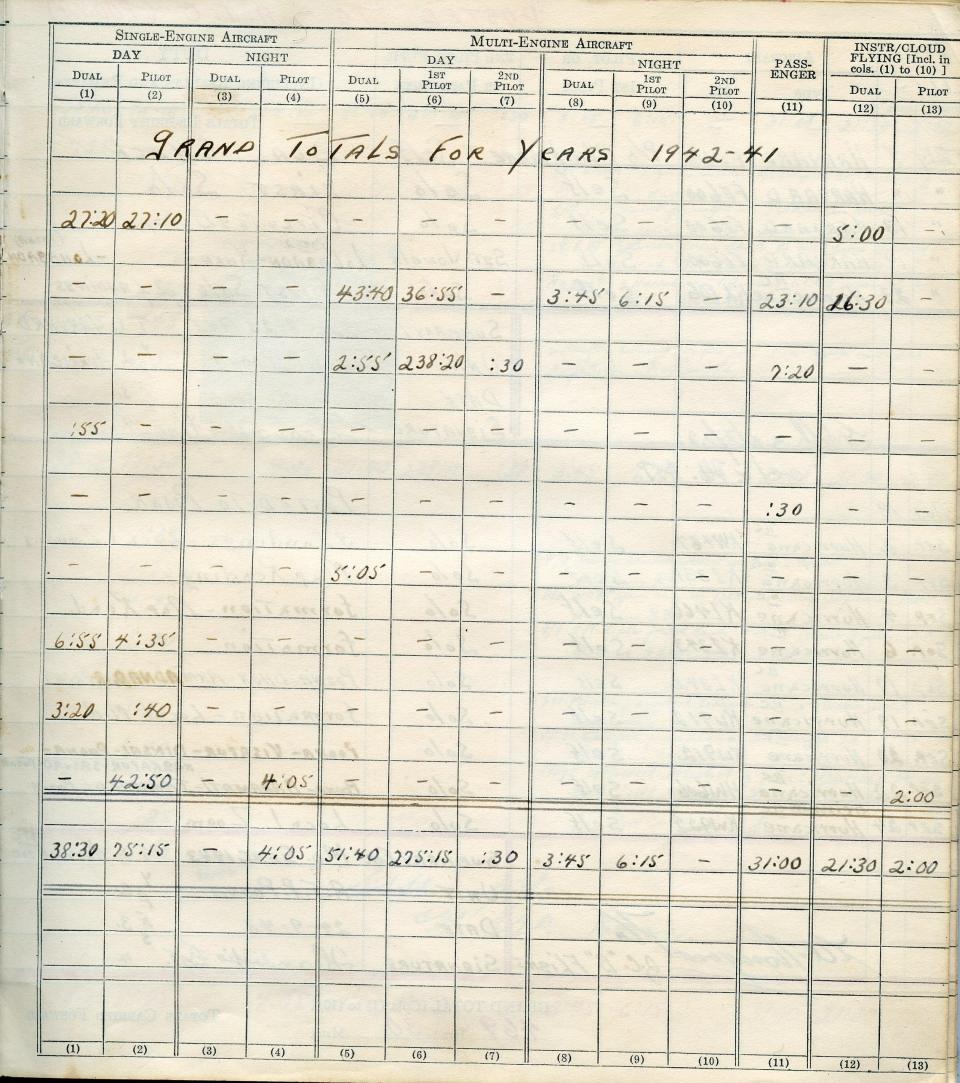 SINGLE-ENGINE AIRCRAFT MULTI-ENGINE AIRCRAFT PASS-ENGER INSTR/CLOUD FLYING [Incl. in cols. (1) to (10) ]
DAY NIGHT DAY NIGHT
DUAL PILOT DUAL PILOT DUAL 1ST PILOT 2ND PILOT DUAL 1ST PILOT 2ND PILOT DUAL PILOT
(1) (2) (3) (4) (5) (6) (7) (8) (9) (10) (11) (12) (13)
GRAND TOTALS FOR YEARS 1942-41
27:20 27:10 – – – – – – – – 5:00 –
– – – – 43:40 36:55 – 3:45 6:15 – 23:10 16:30 –
– – – – 2:55 238:20 :30 – – – 7:20 – –
:55 – – – – – – – – – – – –
– – – – – – – – – – :30 – –
– – – – 5:05 – – – – – – – –
6:55 4:35 – – – – – – – – – – –
3:20 :40 – – – – – – – – – – –
– 42:50 – 4:05 – – – – – – – – 2:00
38:30 75:15 – 4:05 51:40 275:15 :30 3:45 6:15 – 31:00 21:30 2:00
(1) (2) (3) (4) (5) (6) (7) (8) (9) (10) (11) (12) (13)